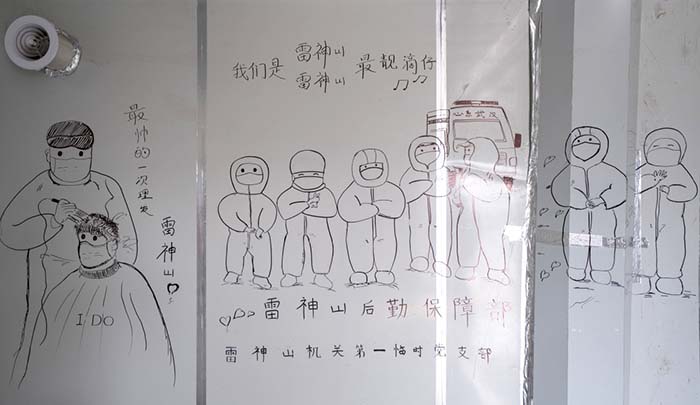 最帅的一次理发
雷神山
I DO
我们是 雷神山 雷神山 最靓滴仔
雷神山后勤保障部
雷神山机关第一临时党支部